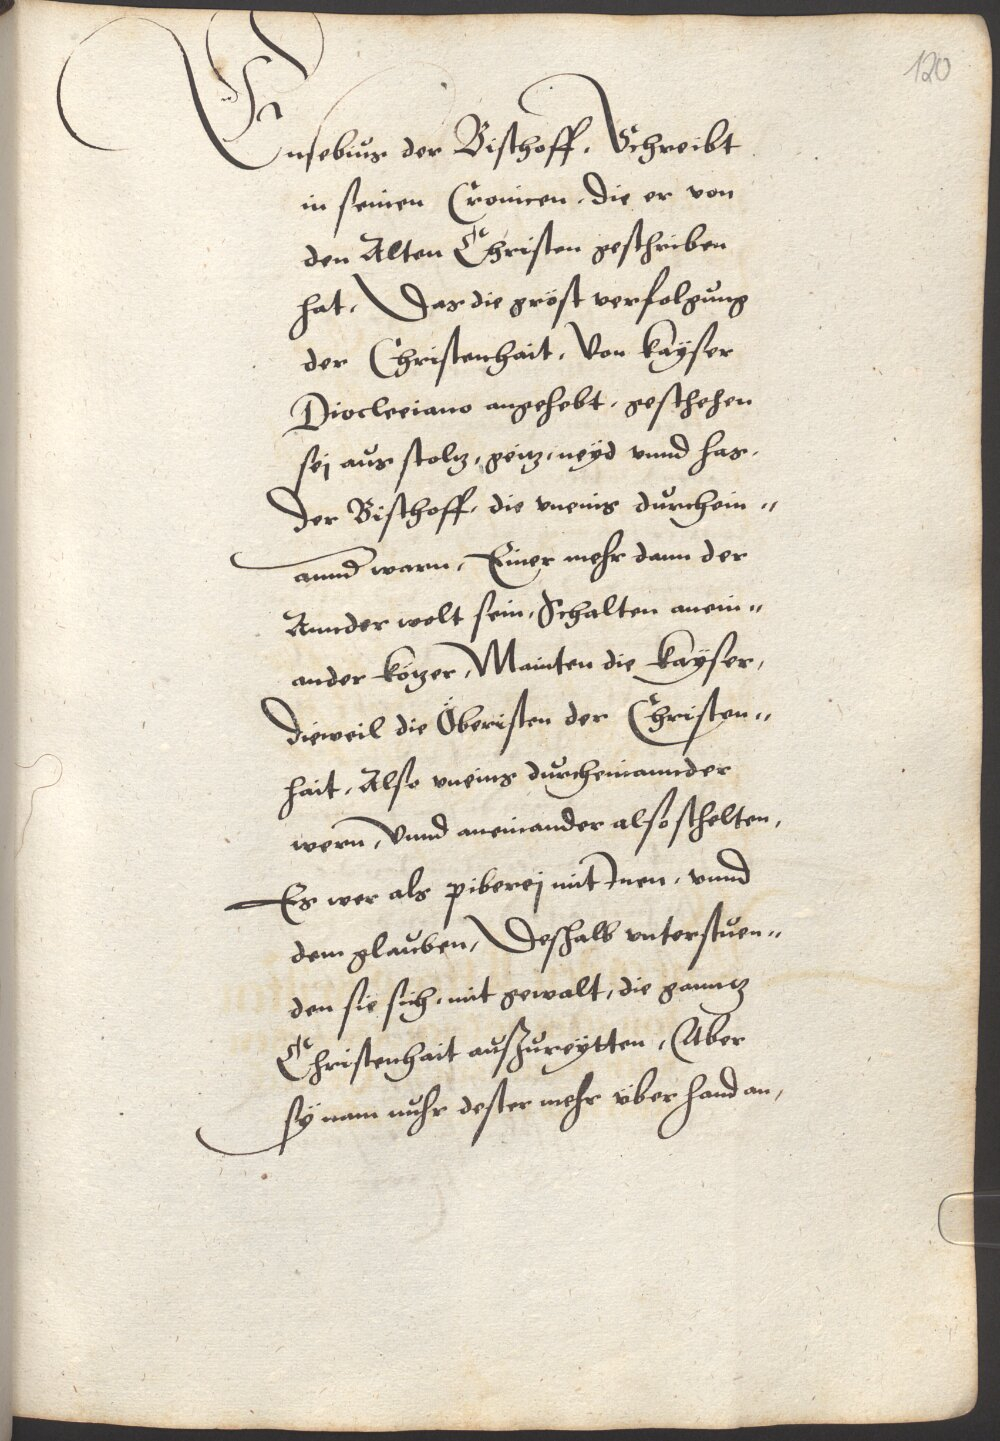 120
Eusebius der Bischoff. Schreibt
in seinen Cronicen. die er von
den Alten Christen geschriben
hat. Das die gröst verfolgung
der Christenhait. Von kaÿser
Diocleciano angehebt. geschehen
seÿ aus stoltz, geitz, neÿd vnnd has.
der Bischoff. die vneins durchein„
annd warn. Einer mehr dann der
Annder wolt sein. Schalten anein„
ander kötzer. Mainten die kaÿser,
dieweil die Öberisten der Christen„
hait. Also vneins durcheinannder
wern. Vnnd aneinander also schelten.
Es wer als piberej mit Inen. vnnd
dem glauben. Deshalb vnterstuen„
den sie sich. mit gewalt, die ganntz
Christenhait auszureÿtten. Aber
sÿ nam nuhr dester mehr über hand an,